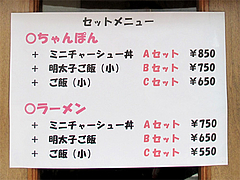 セットメニュー
○ちゃんぽん
+ ミニチャーシュー丼 Aセット ¥850
+ 明太子ご飯(小) Bセット ¥750
+ ご飯(小) Cセット ¥650
○ラーメン
+ ミニチャーシュー丼 Aセット ¥750
+ 明太子ご飯(小) Bセット ¥650
+ ご飯(小) Cセット ¥550